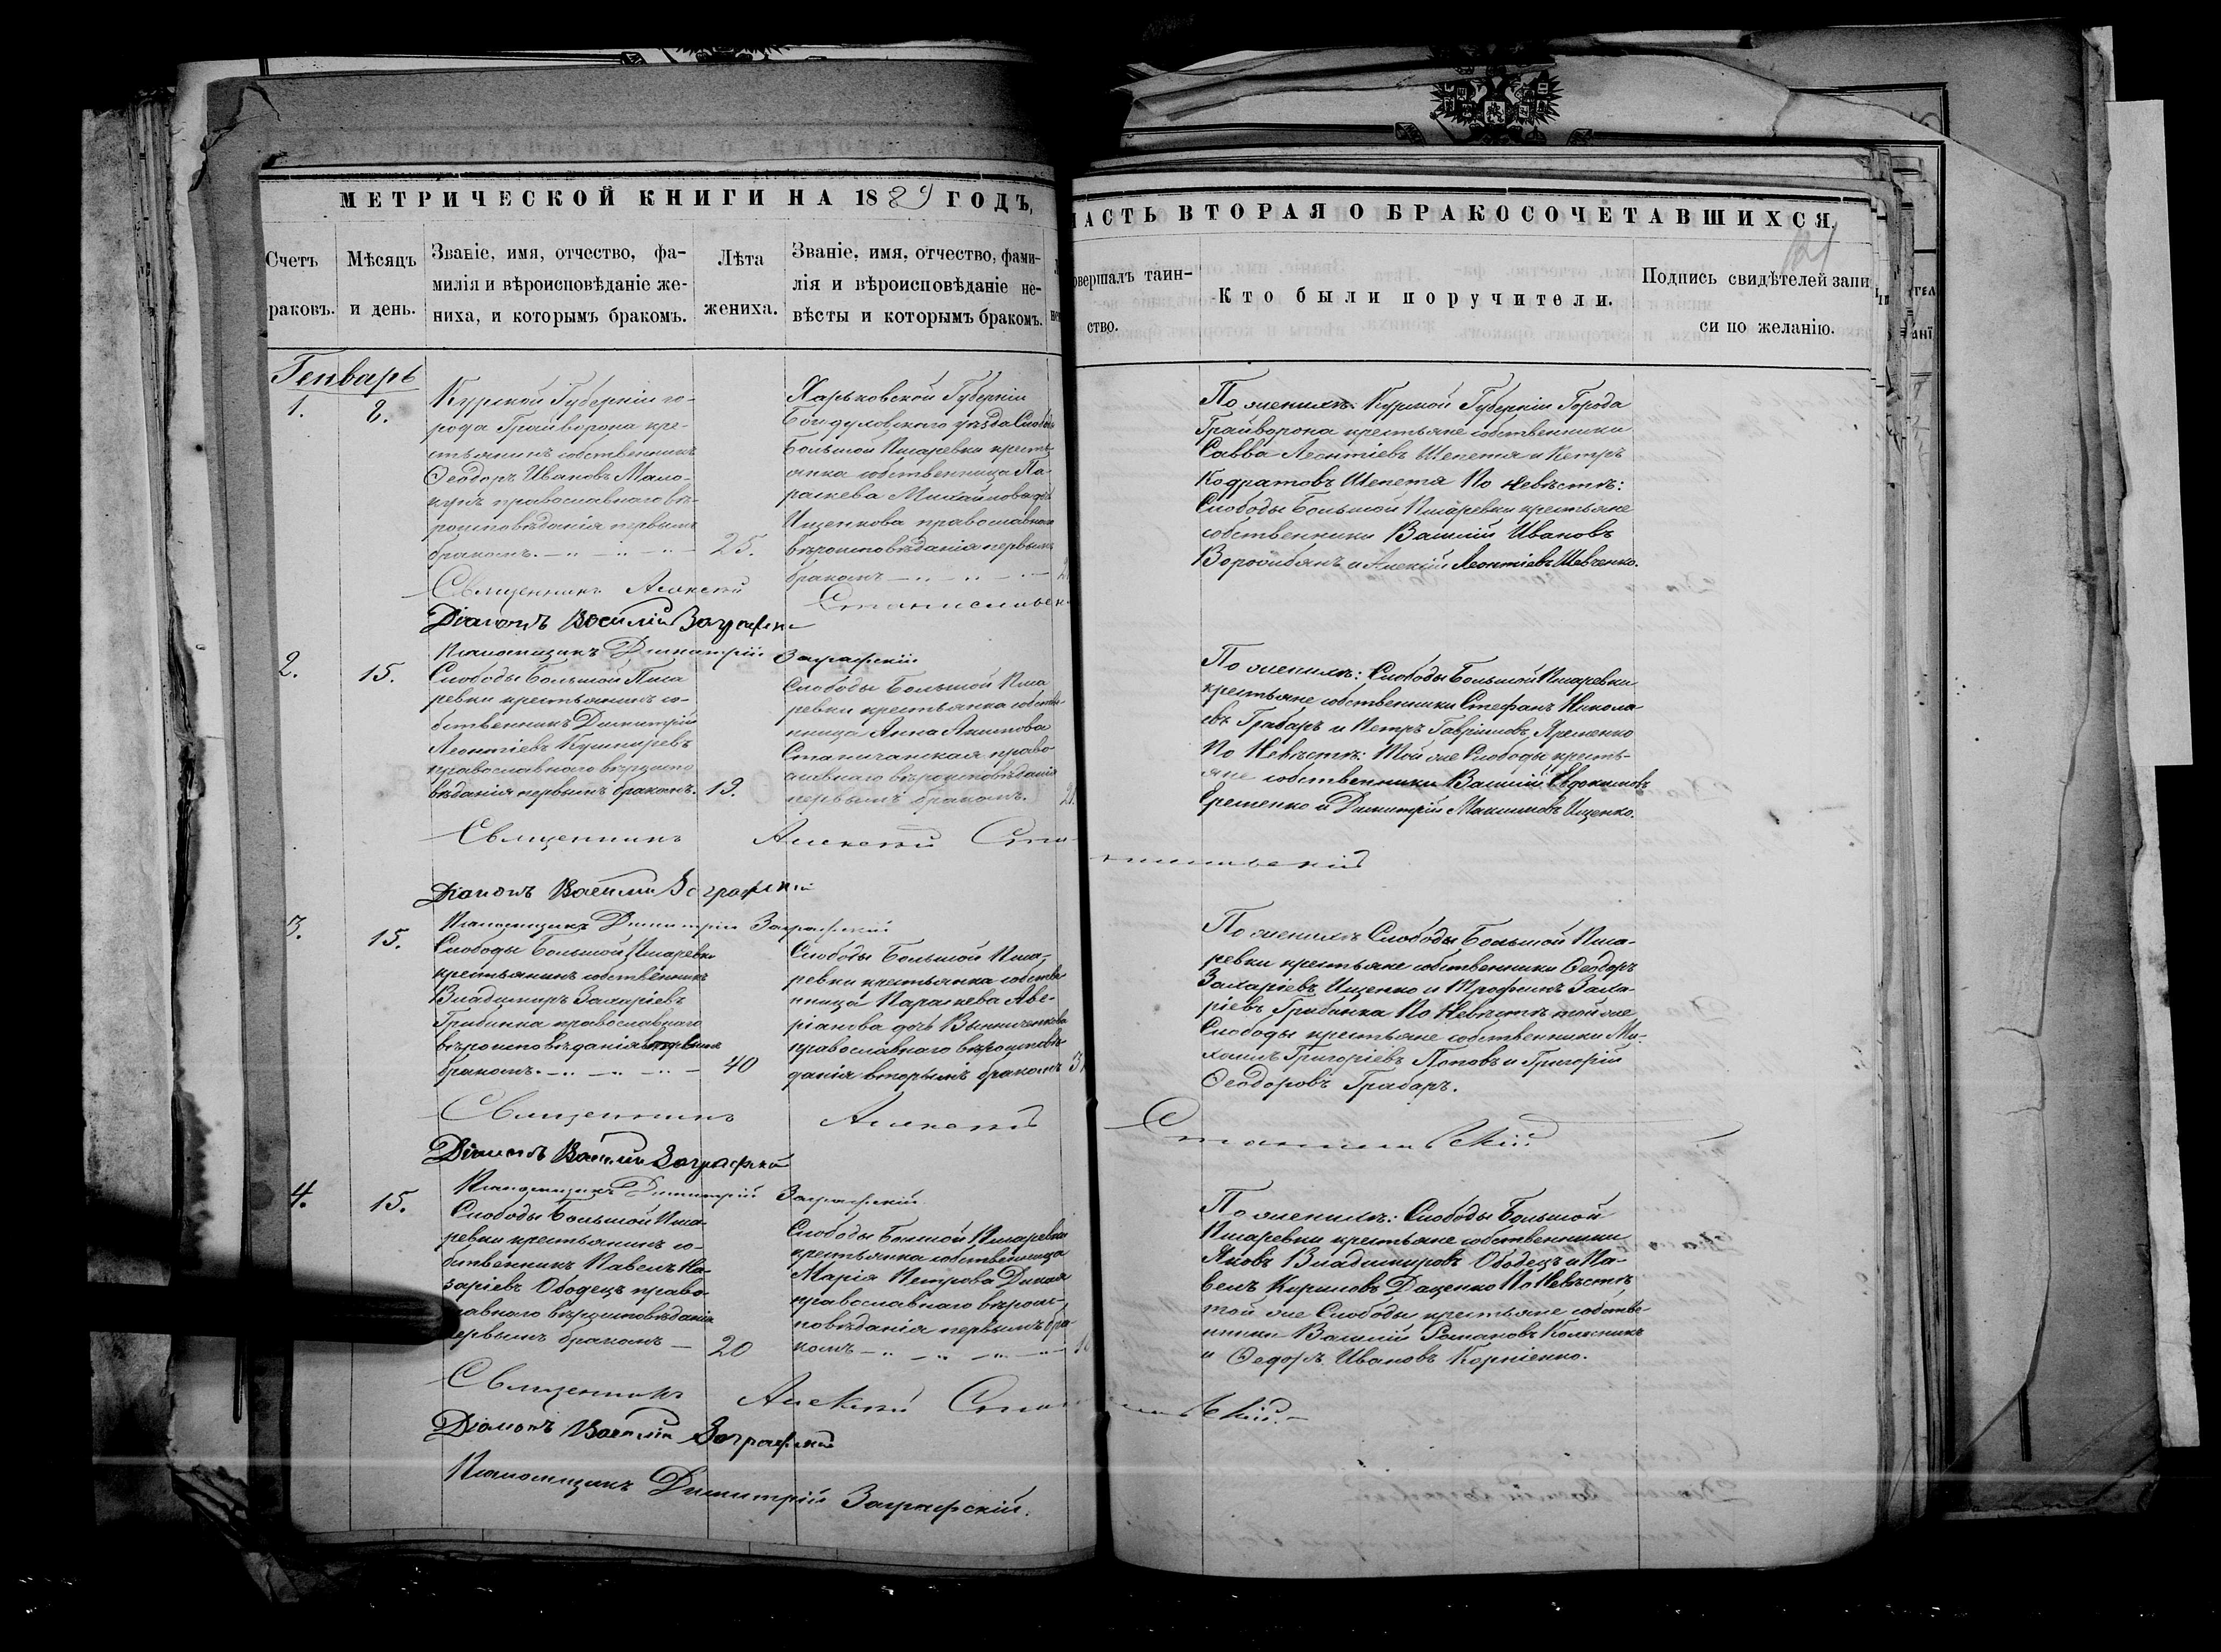 МЕТРИЧЕСКОЙ КНИГИ НА 1889 ГОДЪ,
Счетъ
раковъ.
Мѣсяцъ
и день.
Званіе, имя, отчество, фа-
милія и вѣроисповѣданіе же-
ниха, и которымъ бракомъ.
Лѣта
жениха.
Званіе, имя, отчество, фами-
лія и вѣроисповѣданіе не-
вѣсты и которымъ бракомъ.
Генварь
1.
8.
Курской Губерніи го-
рода Грайворона кре-
стьянинъ собственникъ
Ѳеодоръ Ивановъ
православнаго вѣ-
роисповѣданія первымъ
бракомъ.
25.
Харьковской Губерніи
Богодуховскаго уѣзда
Большой Писаревки кресть-
янка собственница Па-
раскева Михайлова
Ищенкова православнаго
вѣроисповѣданія первымъ
бракомъ
Священникъ Алексій
Діаконъ Василій Заграфскій
Псаломщикъ Димитрій Заграфскій
2.
15.
Слободы Большой Писа
ревки крестьянинъ со-
бственникъ Димитрій
Леонтіевъ Кушнаревъ
православнаго вѣроиспо
вѣданія первымъ бракомъ.
19.
Слободы Большой Писа
ревки крестьянка собстве-
нница Анна Акимова
Станичанская право
славнаго вѣроисповѣданія
первымъ бракомъ.
21.
Священникъ Алексій
Діаконъ Василій Заграфскій
Псаломщикъ Димитрій Заграфскій
3.
15.
Слободы Большой Писаревки
крестьянинъ собственникъ
Владимиръ Захаріевъ
Грибинка православнаго
вѣроисповѣданія
бракомъ.
40
Слободы Большой Писа-
ревки крестьянка собстве-
нница Параскева Аве-
ріанова дочь Винниченкова
православнаго вѣроисповѣ-
данія вторымъ бракомъ
Священникъ Алексій
Діаконъ Василій Заграфскій
Псаломщикъ Димитрій Заграфскій
4.
15.
Слободы Большой Писа-
ревки крестьянинъ со-
бственникъ Павелъ На-
заріевъ Ободецъ право-
славнаго вѣроисповѣданія
первымъ бракомъ
20
Слободы Большой Писаревки
крестьянка собственница
Марія Петрова Дикая
православнаго вѣроис-
повѣданія первымъ бра-
комъ
Священникъ Алексій
Діаконъ Василій Заграфскій
Псаломщикъ Димитрій Заграфскій.
ЧАСТЬ ВТОРАЯ О БРАКОСОЧЕТАВШИХСЯ.
овершалъ таин-
ство.
Кто были поручители.
Подпись свидѣтелей запи
си по желанію.
По женихѣ: Курской Губерніи Города
Грайворона крестьяне собственники
Савва Леонтіевъ Шепетя и Петръ
Кодратовъ Шепетя По Невѣстѣ:
Слободы Большой Писаревки крестьяне
собственники Василій Ивановъ
и Алексій Леонтіевъ Шевченко.
По женихѣ: Слободы Большой Писаревки
крестьяне собственники Стефанъ Никола-
евъ Грабаръ и Петръ Гавріиловъ Яременко
По Невѣстѣ: Той же Слободы кресть-
яне собственники Василій Евдокимовъ
Еременко и Димитрій Максимовъ Ищенко.
По женихѣ Слободы Большой Писа-
ревки крестьяне собственники Ѳеодоръ
Захаріевъ Ищенко и Трофимъ Заха-
ріевъ Грибинка По Невѣстѣ той же
Слободы крестьяне собственники Ми-
хаилъ Григоріевъ Поповъ и Григорій
Ѳеодоровъ Грабаръ.
По женихѣ: Слободы Большой
Писаревки крестьяне собственники
Яковъ Владимировъ Ободецъ и Па-
велъ Кириловъ Даценко По Невѣстѣ
той же Слободы крестьяне собстве-
нники Василій Романовъ Колесникъ
и Ѳедоръ Ивановъ Корніенко.